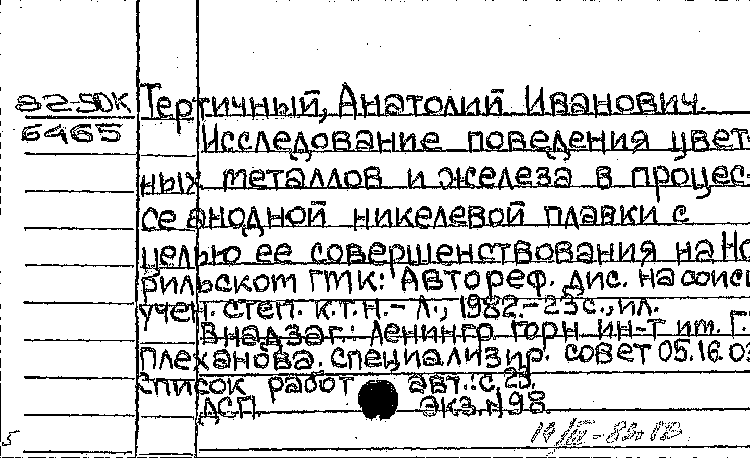 82-5DK Тертичный, Анатолий Иванович.
6465 Исследование поведения цвет-
ных металлов и железа в процес-
се анодной никелевой плавки с
целью ее совершенствования на Но
рильском ГМК: Автореф. дис. на соиск
учен. степ. к.т.н. - Л., 1982. - 23 с., ил.
В надзаг.: Ленингр. горн. ин-т им. Г.
Плеханова. Специализир. совет 05.16.03
Список работ авт.: с. 23.
ДСП. Экз. №98.
5